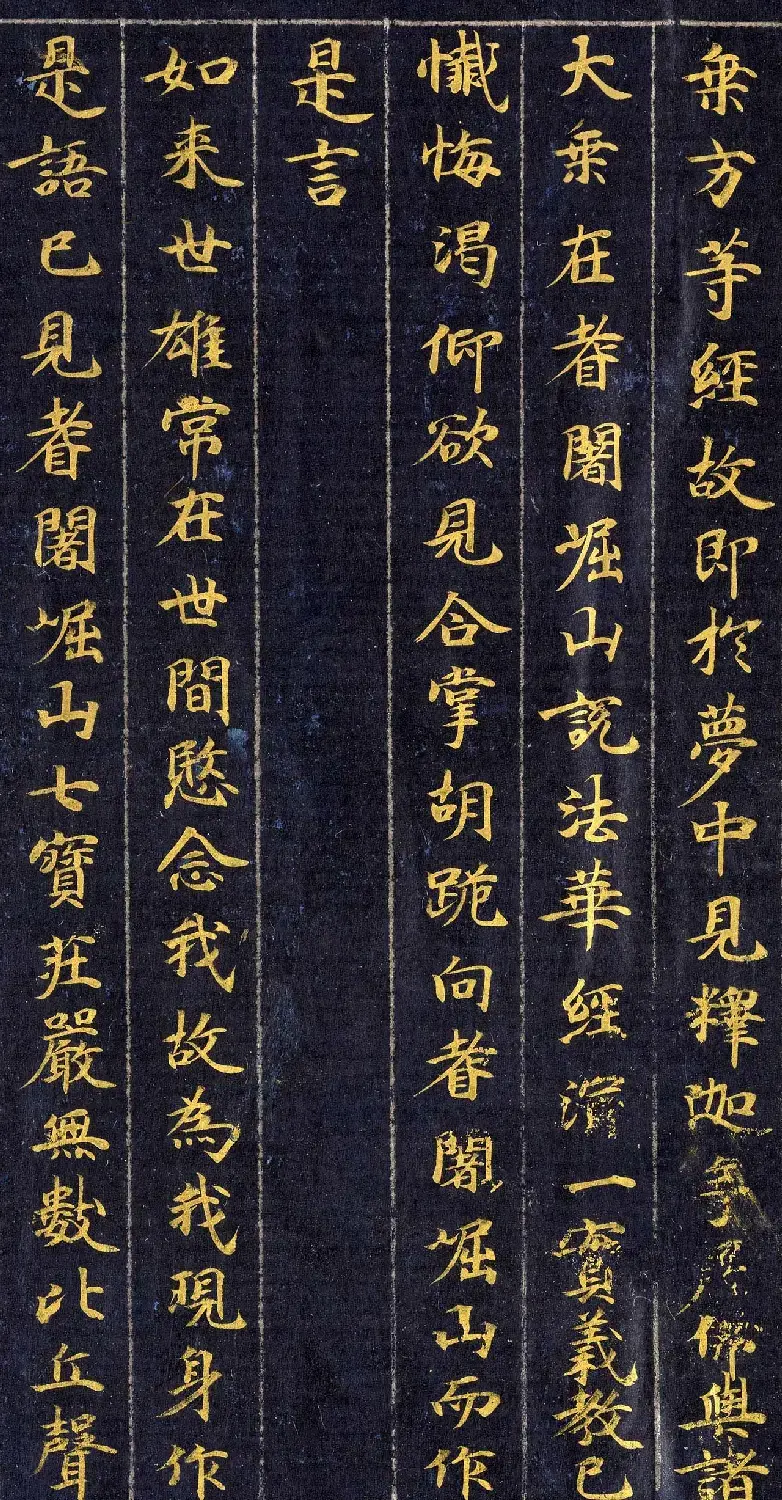 乗方等經故即於夢中見釋迦牟尼佛與諸
大乗在耆闍崛山說法華經演一實義教已
懺悔渇仰欲見合掌胡跪向耆闍崛山而作
是言
如来世雄常在世間愍念我故為我現身作
是語已見耆闍崛山七寶莊嚴無數比丘聲